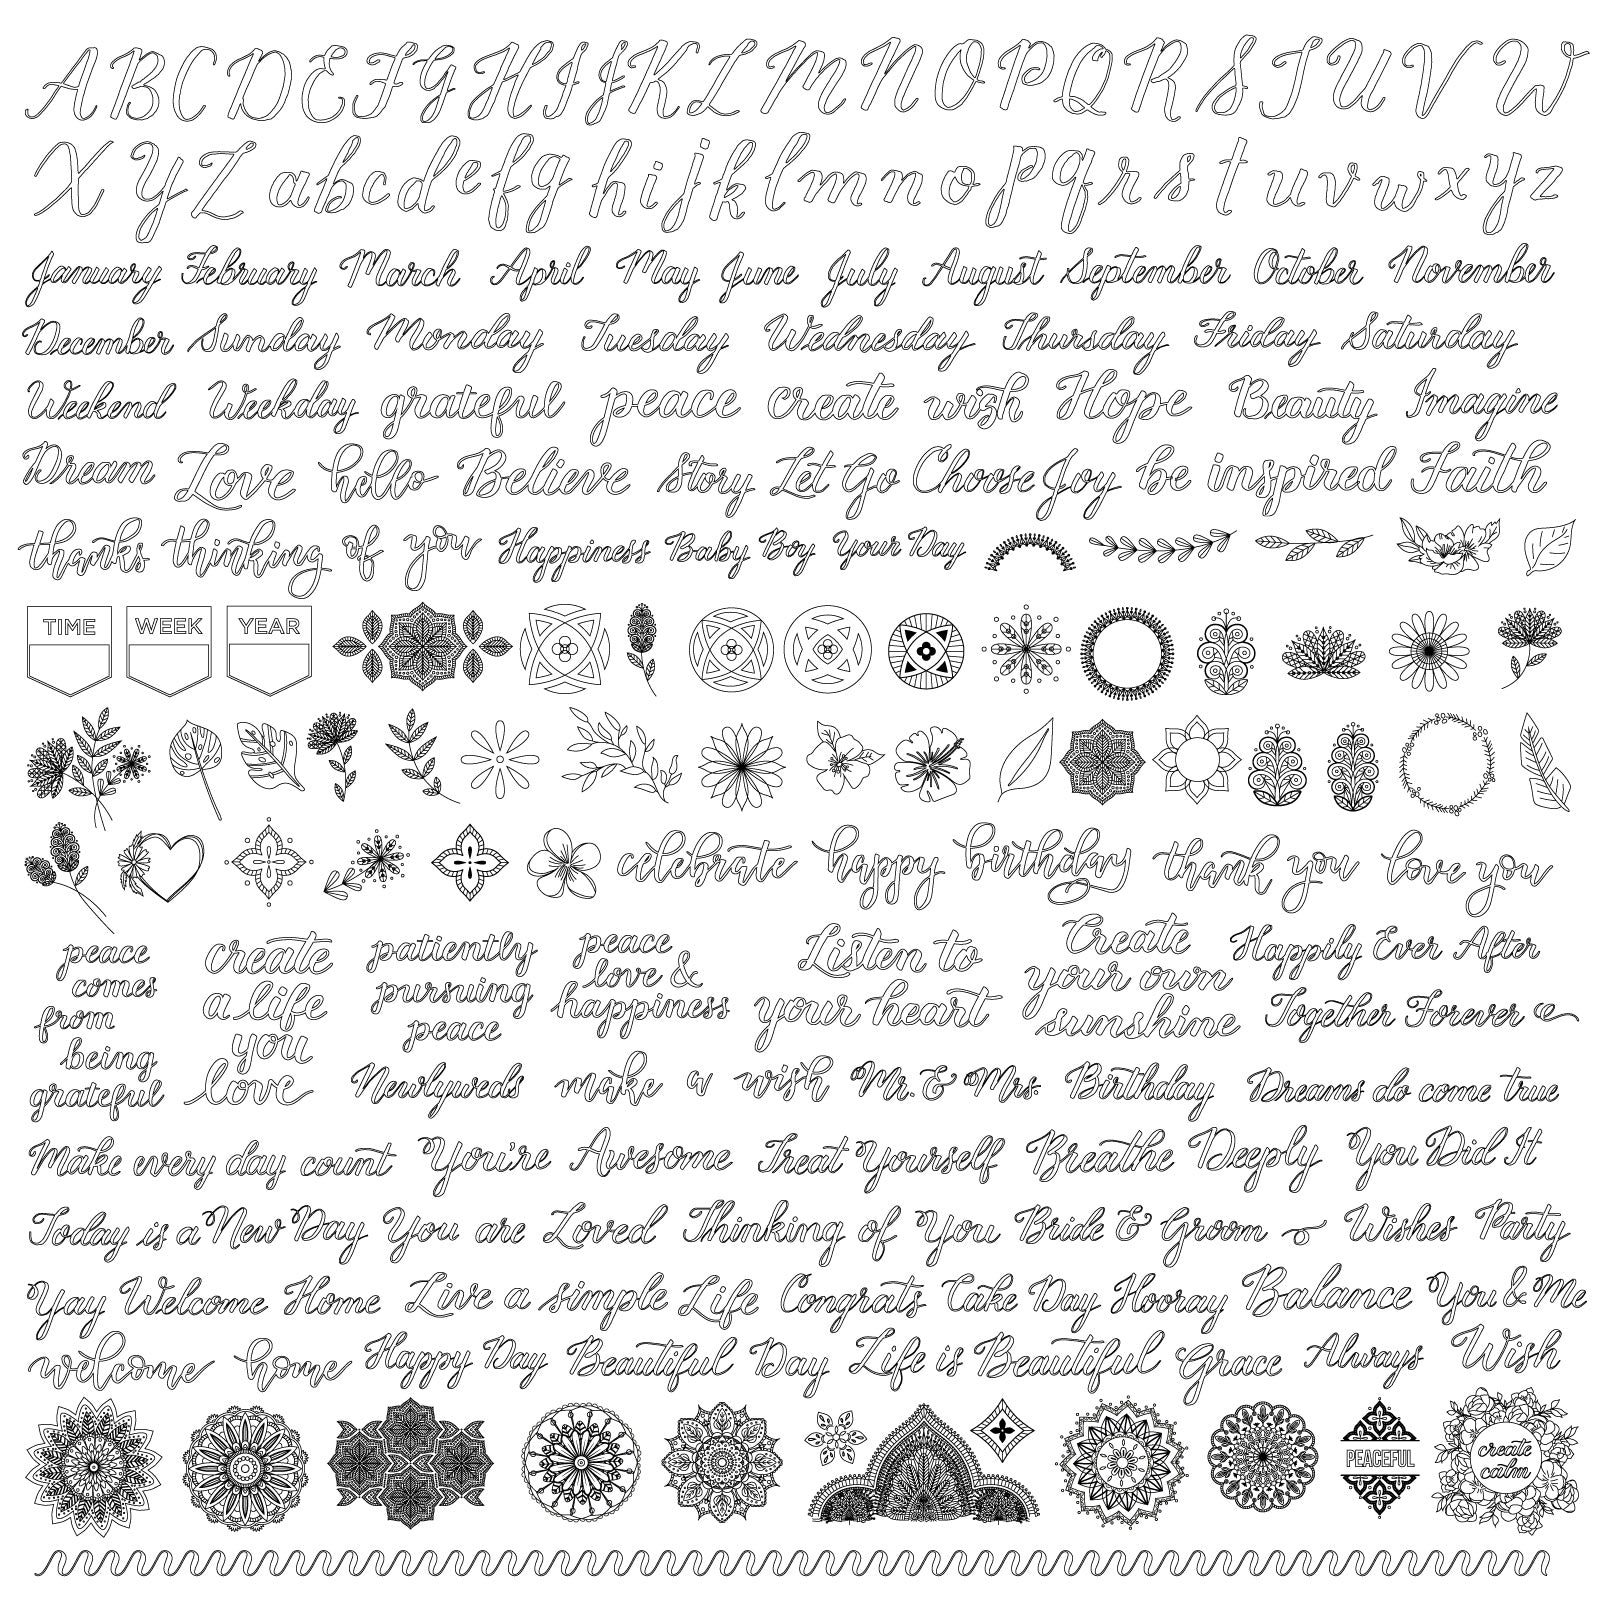 A B C D E F G H I J K L M N O P Q R S T U V W
X Y Z a b c d e f g h i j k l m n o p q r s t u v w x y z
January February March April May June July August September October November
December Sunday Monday Tuesday Wednesday Thursday Friday Saturday
Weekend Weekday grateful peace create wish Hope Beauty Imagine
Dream Love hello Believe Story Let Go Choose Joy be inspired Faith
thanks thinking of you Happiness Baby Boy Your Day
TIME WEEK YEAR
celebrate happy birthday thank you love you
peace
comes
from
being
grateful
create
a life
you
love
patiently
pursuing
peace
peace
love &
happiness
Listen to
your heart
Create
your own
sunshine
Happily Ever After
Together Forever
Newlyweds make a wish Mr. & Mrs. Birthday Dreams do come true
Make every day count You're Awesome Treat Yourself Breathe Deeply You Did It
Today is a New Day You are Loved Thinking of You Bride & Groom Wishes Party
Yay Welcome Home Live a simple Life Congrats Cake Day Hooray Balance You & Me
welcome home Happy Day Beautiful Day Life is Beautiful Grace Always Wish
PEACEFUL
create
calm